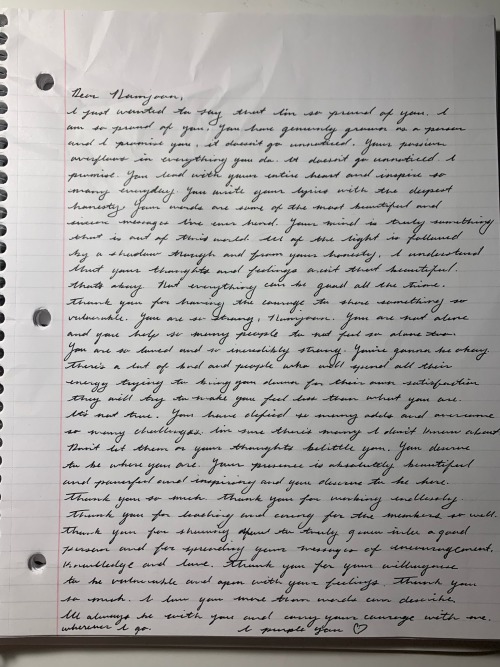 Dear Namjoon,
I just wanted to say that I'm so proud of you. I
am so proud of you. You have genuinely grown as a person
and I promise you, it doesn't go unnoticed. Your passion
overflows in everything you do. It doesn't go unnoticed I
promise. You lead with your entire heart and inspire so
many everyday. You write your lyrics with the deepest
honesty. Your words are some of the most beautiful and
sincere messages I've ever heard. Your mind is truly something
that is out of this world. All of the light is followed
by a shadow though and from your honesty, I understand
that your thoughts and feelings aren't that beautiful.
that's okay. Not everything can be good all the time.
thank you for having the courage to share something so
vulnerable. You are so strong, Namjoon. You are not alone
and you help so many people to not feel so alone too.
You are so loved and so incredibly strong. You're gonna be okay.
there's a lot of bad and people who will spend all their
energy trying to bring you down for their own satisfaction
they will try to make you feel less than what you are.
It's not true. You have defied so many odds and overcome
so many challenges. I'm sure there's many I don't know about
Don't let them or your thoughts belittle you. You deserve
to be where you are. Your presence is absolutely beautiful
and powerful and inspiring and you deserve to be here.
thank you so much. thank you for working endlessly.
thank you for leading and caring for the members so well.
thank you for showing how to truly grow into a good
person and for spreading your messages of encouragement,
knowledge and love. thank you for your willingness
to be vulnerable and open with your feelings. thank you
so much. I love you more than words can describe.
I'll always be with you and carry your courage with me
wherever I go. I purple you ♡